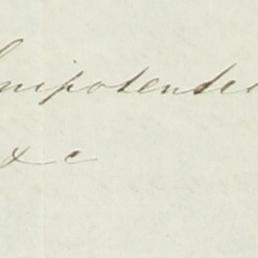 nipotentia
&c